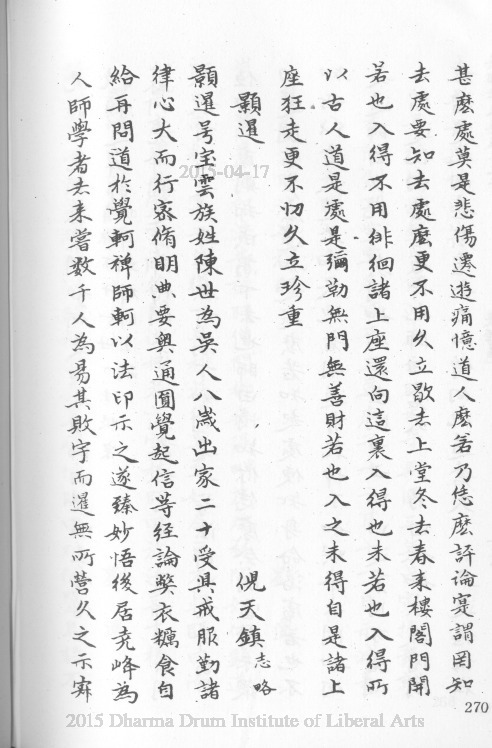 甚麼處莫是悲傷遷逝痛憶道人麼若乃恁麼評論寔謂罔知
去處要知去處麼更不用久立歇去上堂冬去春來樓閣門開
若也入得不用徘徊諸上座還向這裏入得也未若也入得所
以古人道是處是彌勒無門無善財若也入之未得自是諸上
座狂走更不忉久立珍重
顥暹　倪天鎮志略
顥暹号宝雲族姓陳世為吳人八歲出家二十受具戒服勤諸
律心大而行密脩明典要輿通圓覺起信等経論弊衣糲食自
給再問道於覺軻禅師軻以法印示之遂臻妙悟後居尭峰為
人師學者去来嘗数千人為易其敗宇而暹無所營久之示寂
270
2015-04-17
2015 Dharma Drum Institute of Liberal Arts